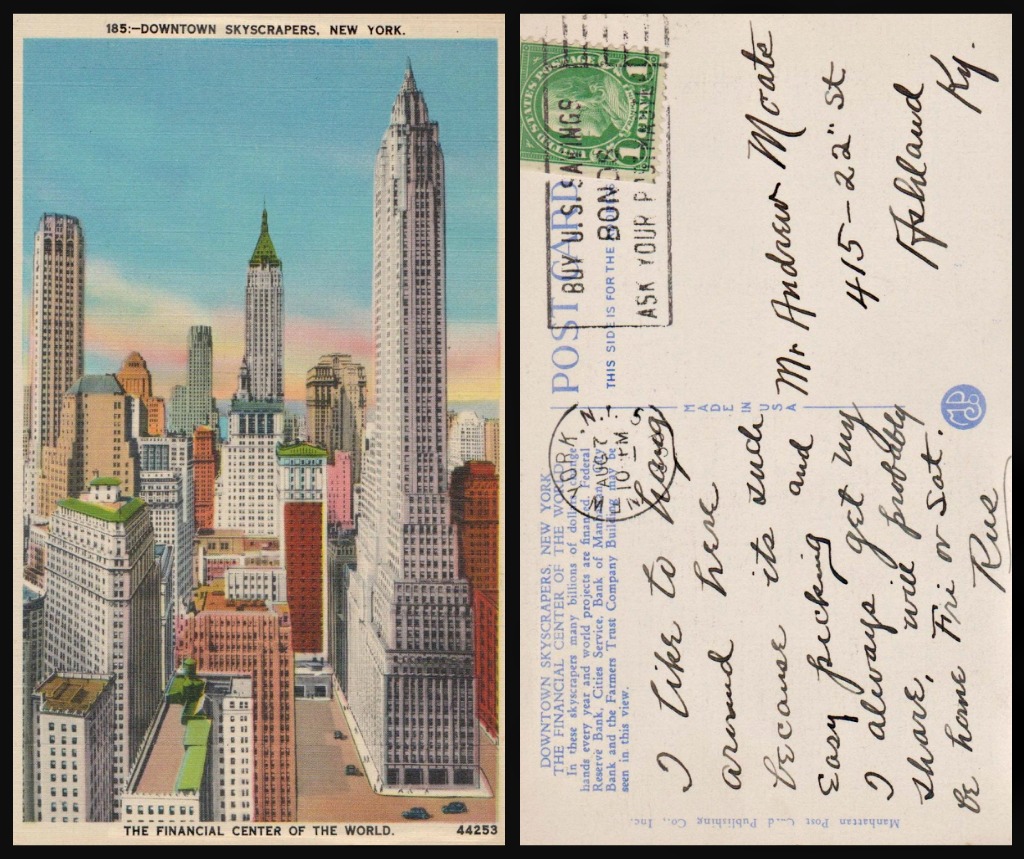 185:—DOWNTOWN SKYSCRAPERS, NEW YORK.
THE FINANCIAL CENTER OF THE WORLD.
44253
UNITED STATES POSTAGE
1 CENT 1
BUY U.S. SAVINGS
BONDS
ASK YOUR
POST CARD
THIS SIDE IS FOR THE
YORK, N.
AUG 7
10 PM
MADE
IN
USA
DOWNTOWN SKYSCRAPERS, NEW YORK
THE FINANCIAL CENTER OF THE WORLD
In these skyscrapers many billions of dollars change
hands every year and world projects are financed. Federal
Reserve Bank, Cities Service, Bank of Manhattan
Bank and the Farmers Trust Company Building may be
seen in this view.
I like to hang
around here
because its such
Easy picking and
I always get my
share, will probbly
be home Fri or Sat.
Rus
Mr Andrew Moats
415-22" St
Ashland
Ky.
Manhattan Post Card Publishing Co., Inc.